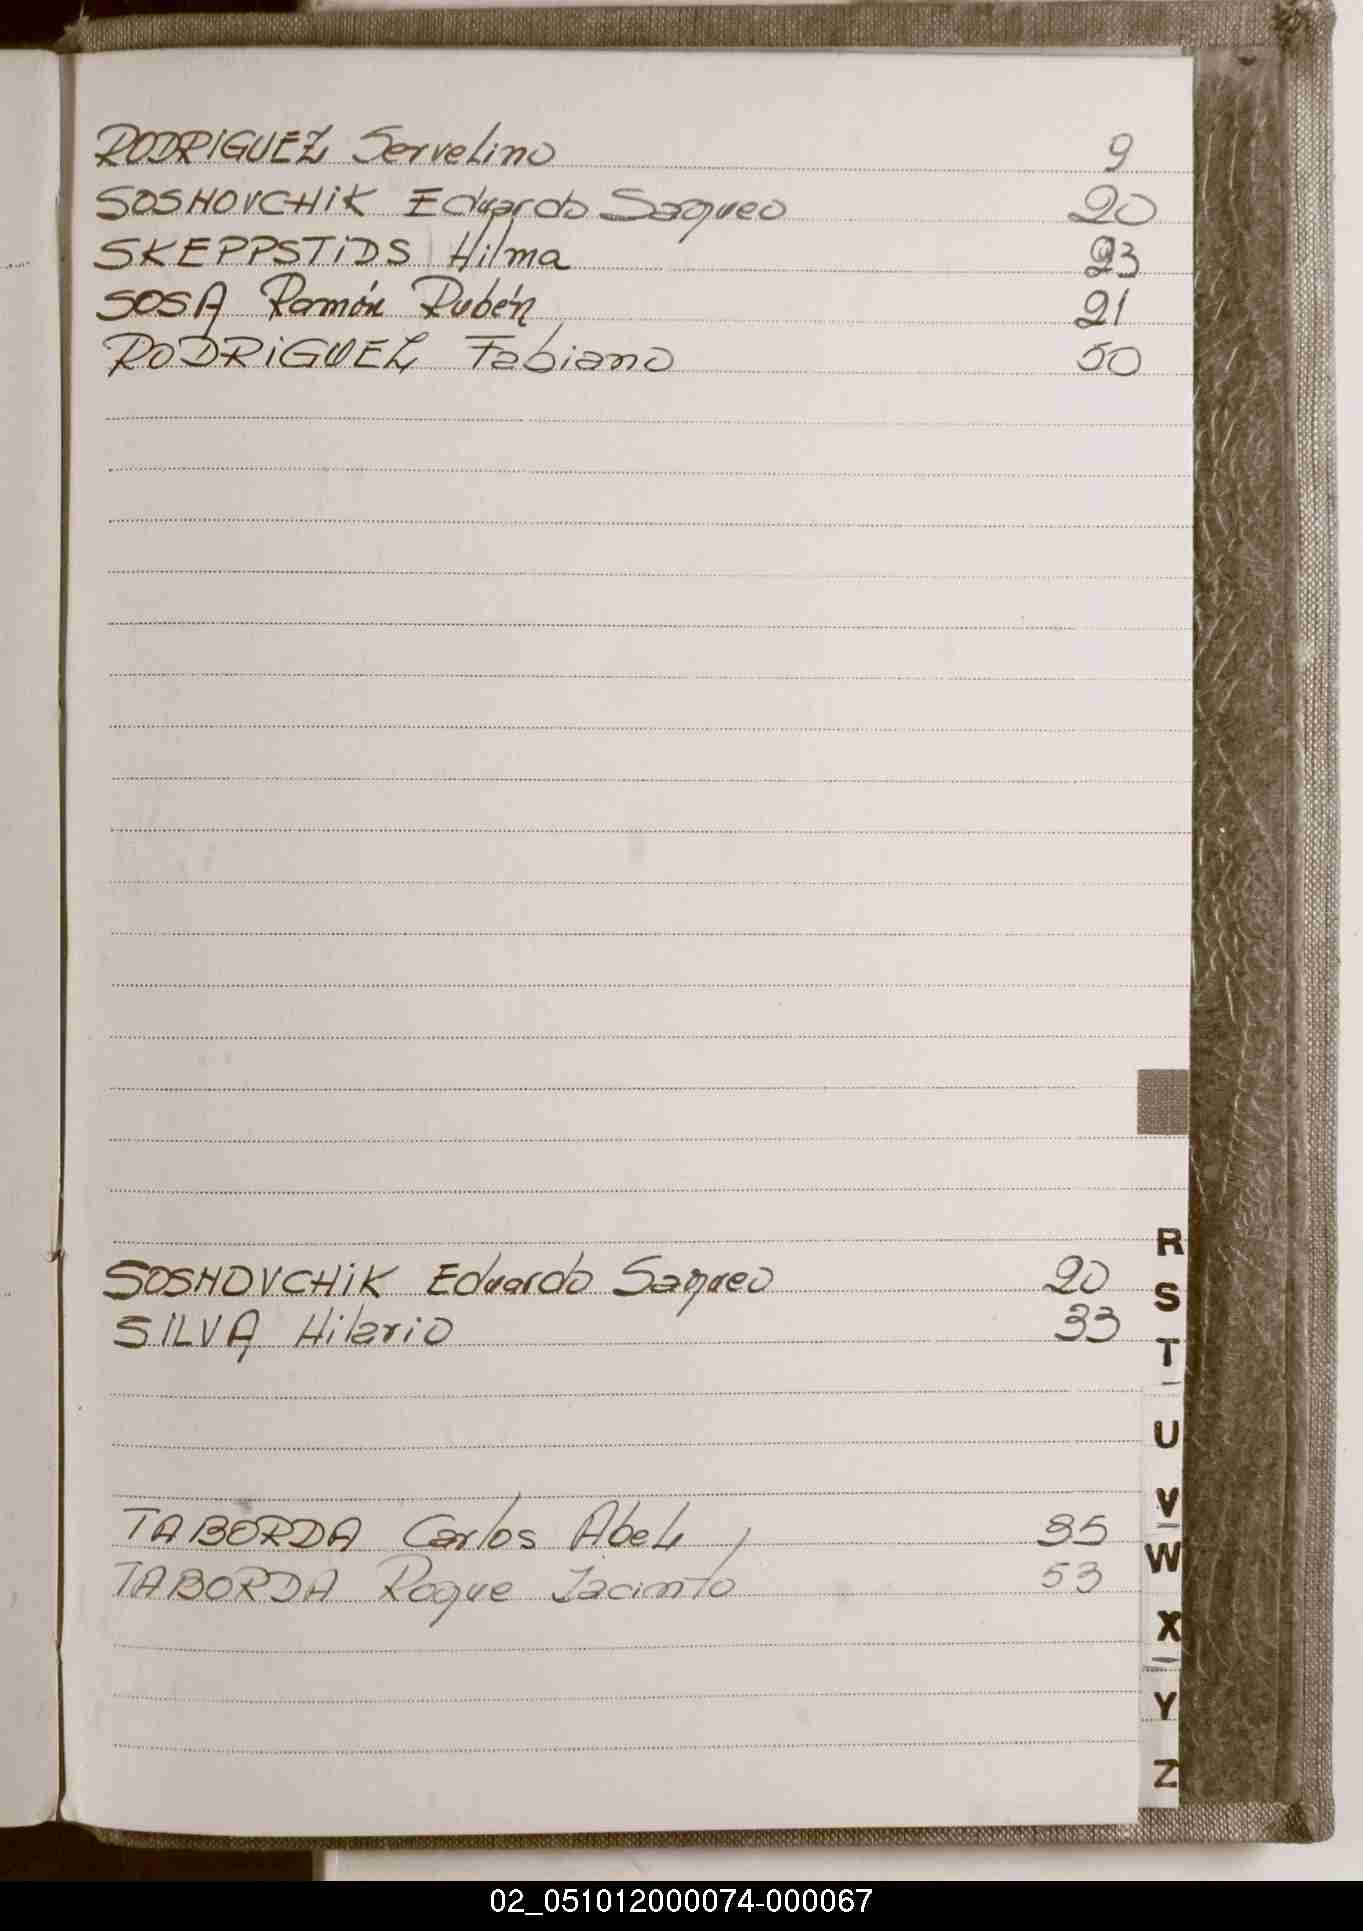 RODRIGUEZ Servelino 9
SOSNOVCHIK Eduardo Saqueo 20
SKEPPSTIDS Hilma 23
SOSA Ramón Rubén 21
RODRIGUEZ Fabiano 50
SOSNOVCHIK Eduardo Saqueo 20
SILVA Hilario 33
TABORDA Carlos Abel 35
TABORDA Roque Jacinto 53
R
S
T
U
V
W
X
Y
Z
02_051012000074-000067